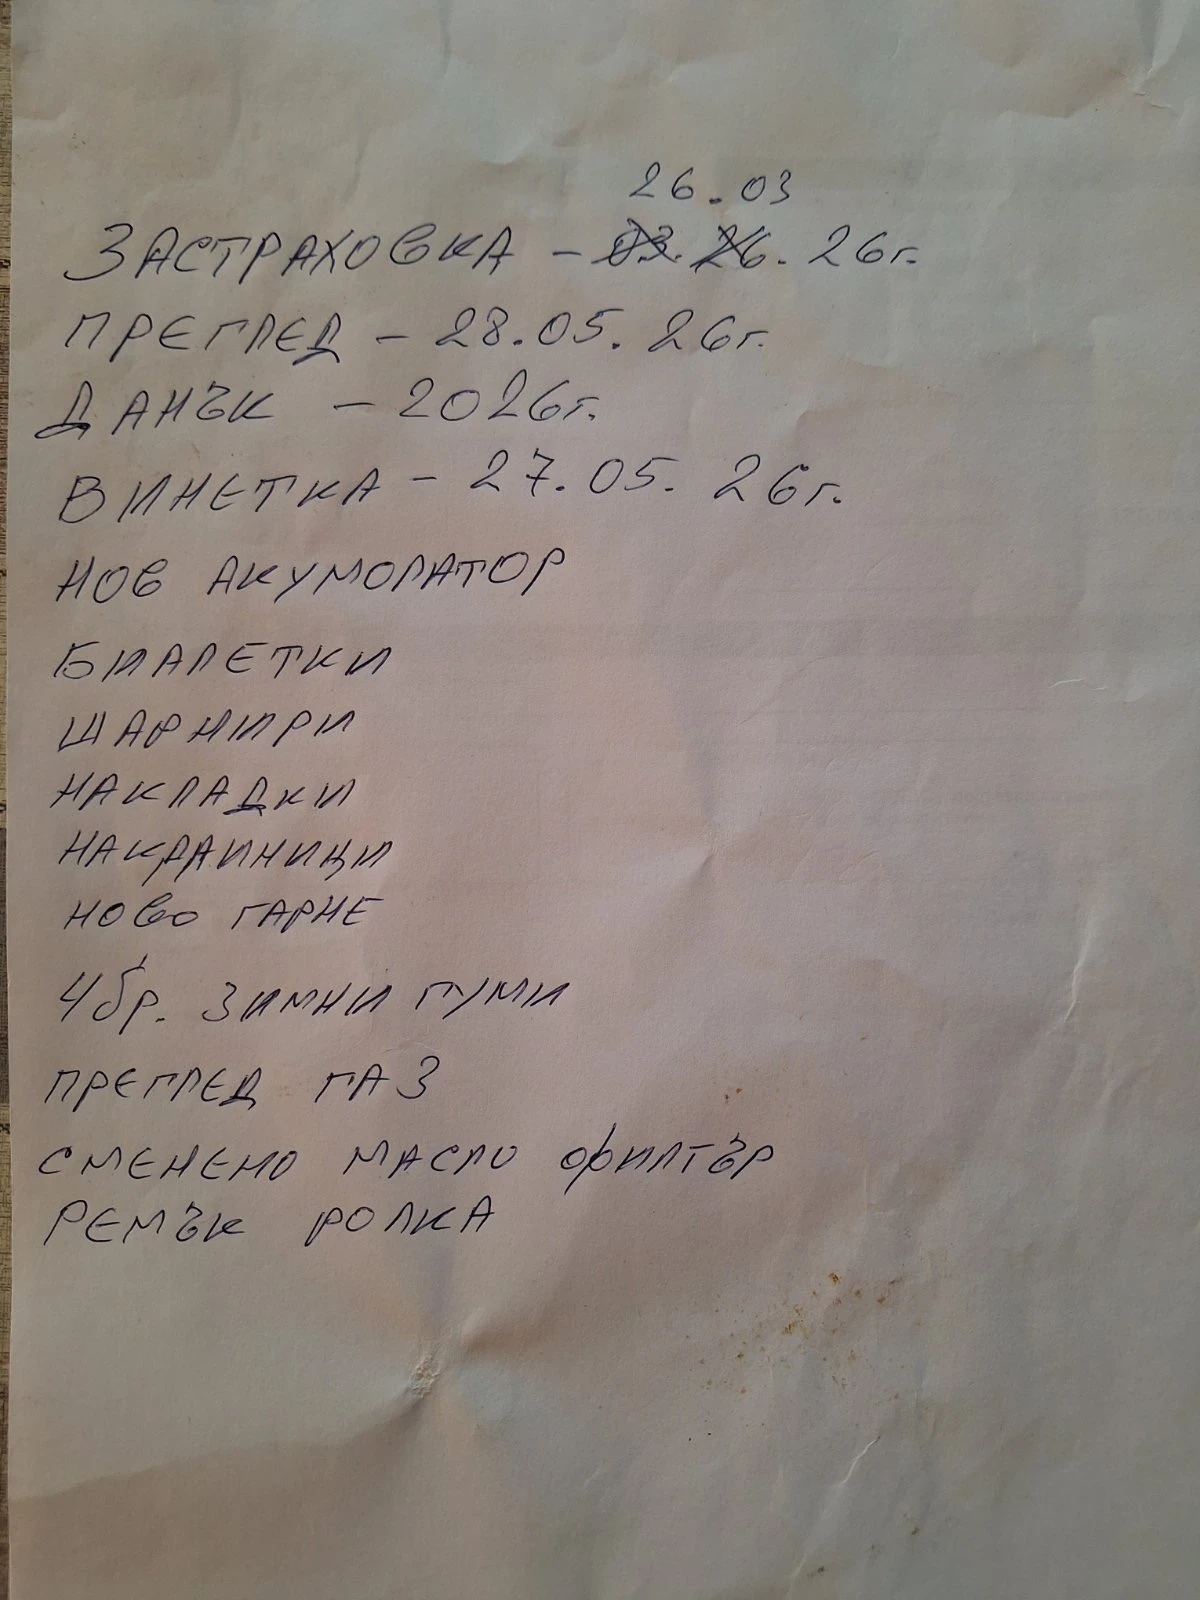 26.03
ЗАСТРАХОВКА - 03. 26. 26г.
ПРЕГЛЕД - 28.05.26г.
ДАНЪК - 2026г.
ВИНЕТКА - 27.05.26г.
НОВ АКУМОЛАТОР
БИАЛЕТКИ
ШАРНИРИ
НАКЛАДКИ
НАКРАИНИЦИ
НОВО ГАРНЕ
4бр. ЗИМНИ ГУМИ
ПРЕГЛЕД ГАЗ
СМЕНЕНО МАСЛО ФИЛТЪР
РЕМЪК РОЛКА